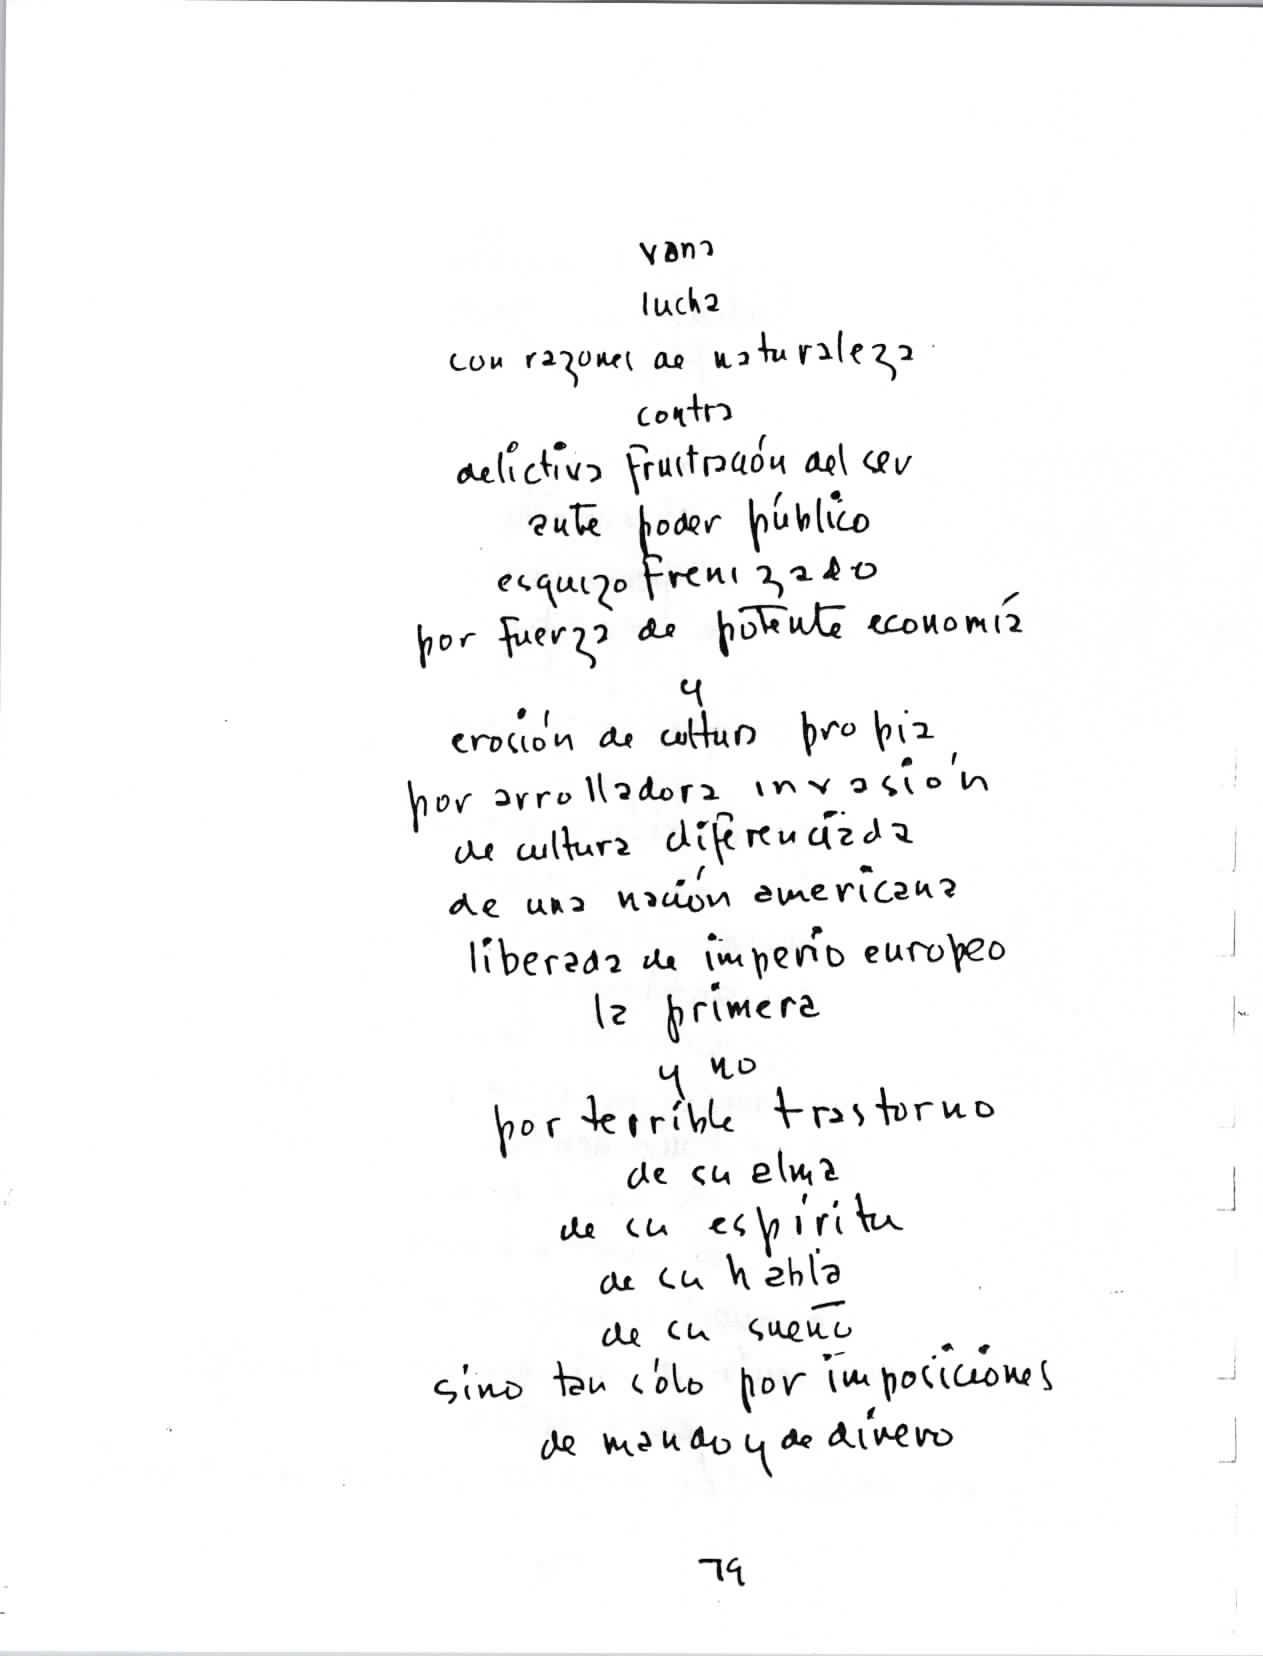 vana
lucha
con razones de naturaleza
contra
delictiva frustración del ser
ante poder público
esquizofrenizado
por fuerza de potente economía
y
erosión de cultura propia
por arrolladora invasión
de cultura diferenciada
de una nación americana
liberada de imperio europeo
la primera
y no
por terrible trastorno
de su alma
de su espíritu
de su habla
de su sueño
sino tan sólo por imposiciones
de mando y de dinero
79